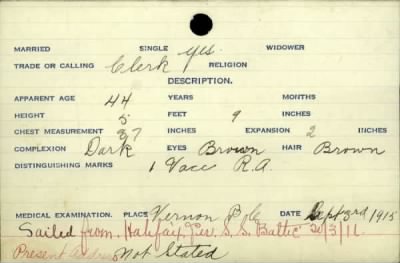 MARRIED SINGLE Yes. WIDOWER
TRADE OR CALLING Clerk RELIGION
DESCRIPTION.
APPARENT AGE 44 YEARS MONTHS
HEIGHT 5 FEET 9 INCHES
CHEST MEASUREMENT 37 INCHES EXPANSION 2 INCHES
COMPLEXION Dark EYES Brown HAIR Brown
DISTINGUISHING MARKS 1 Vacc R.A.
MEDICAL EXAMINATION. PLACE Vernon B.C. DATE Sept 3rd 1915
Sailed from Halifax, Per S.S. Baltic
Present Address Not Stated